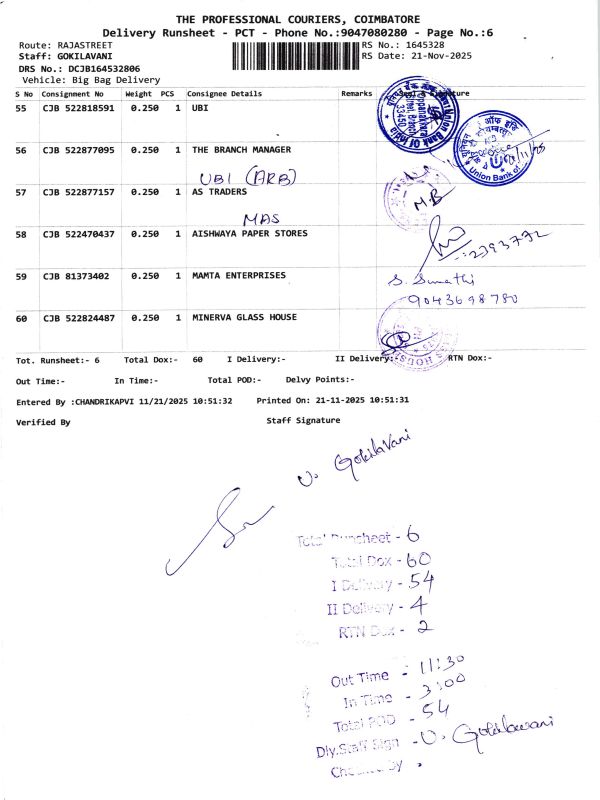 THE PROFESSIONAL COURIERS, COIMBATORE
Delivery Runsheet - PCT - Phone No.:9047080280 - Page No.:6
Route: RAJASTREET
Staff: GOKILAVANI
DRS No.: DCJB164532806
Vehicle: Big Bag Delivery
RS No.: 1645328
RS Date: 21-Nov-2025
S No Consignment No Weight PCS Consignee Details Remarks Signature
55 CJB 522818591 0.250 1 UBI
Union Bank Of India
33450
Union Bank of
21/11/25
56 CJB 522877095 0.250 1 THE BRANCH MANAGER
UBI (ARB)
57 CJB 522877157 0.250 1 AS TRADERS
M.B
MAS
58 CJB 522470437 0.250 1 AISHWAYA PAPER STORES
2393772
59 CJB 81373402 0.250 1 MAMTA ENTERPRISES
S. Sumathi
9043698780
60 CJB 522824487 0.250 1 MINERVA GLASS HOUSE
Tot. Runsheet:- 6 Total Dox:- 60 I Delivery:- II Delivery:- RTN Dox:-
Out Time:- In Time:- Total POD:- Delvy Points:-
Entered By :CHANDRIKAPVI 11/21/2025 10:51:32 Printed On: 21-11-2025 10:51:31
Verified By Staff Signature
V. Gokilavani
Total Runsheet - 6
Total Dox - 60
I Delivery - 54
II Delivery - 4
RTN Dox - 2
Out Time - 11:30
In Time - 3:00
Total POD - 54
Dly.Staff Sign - V. Gokilavani
Checked By